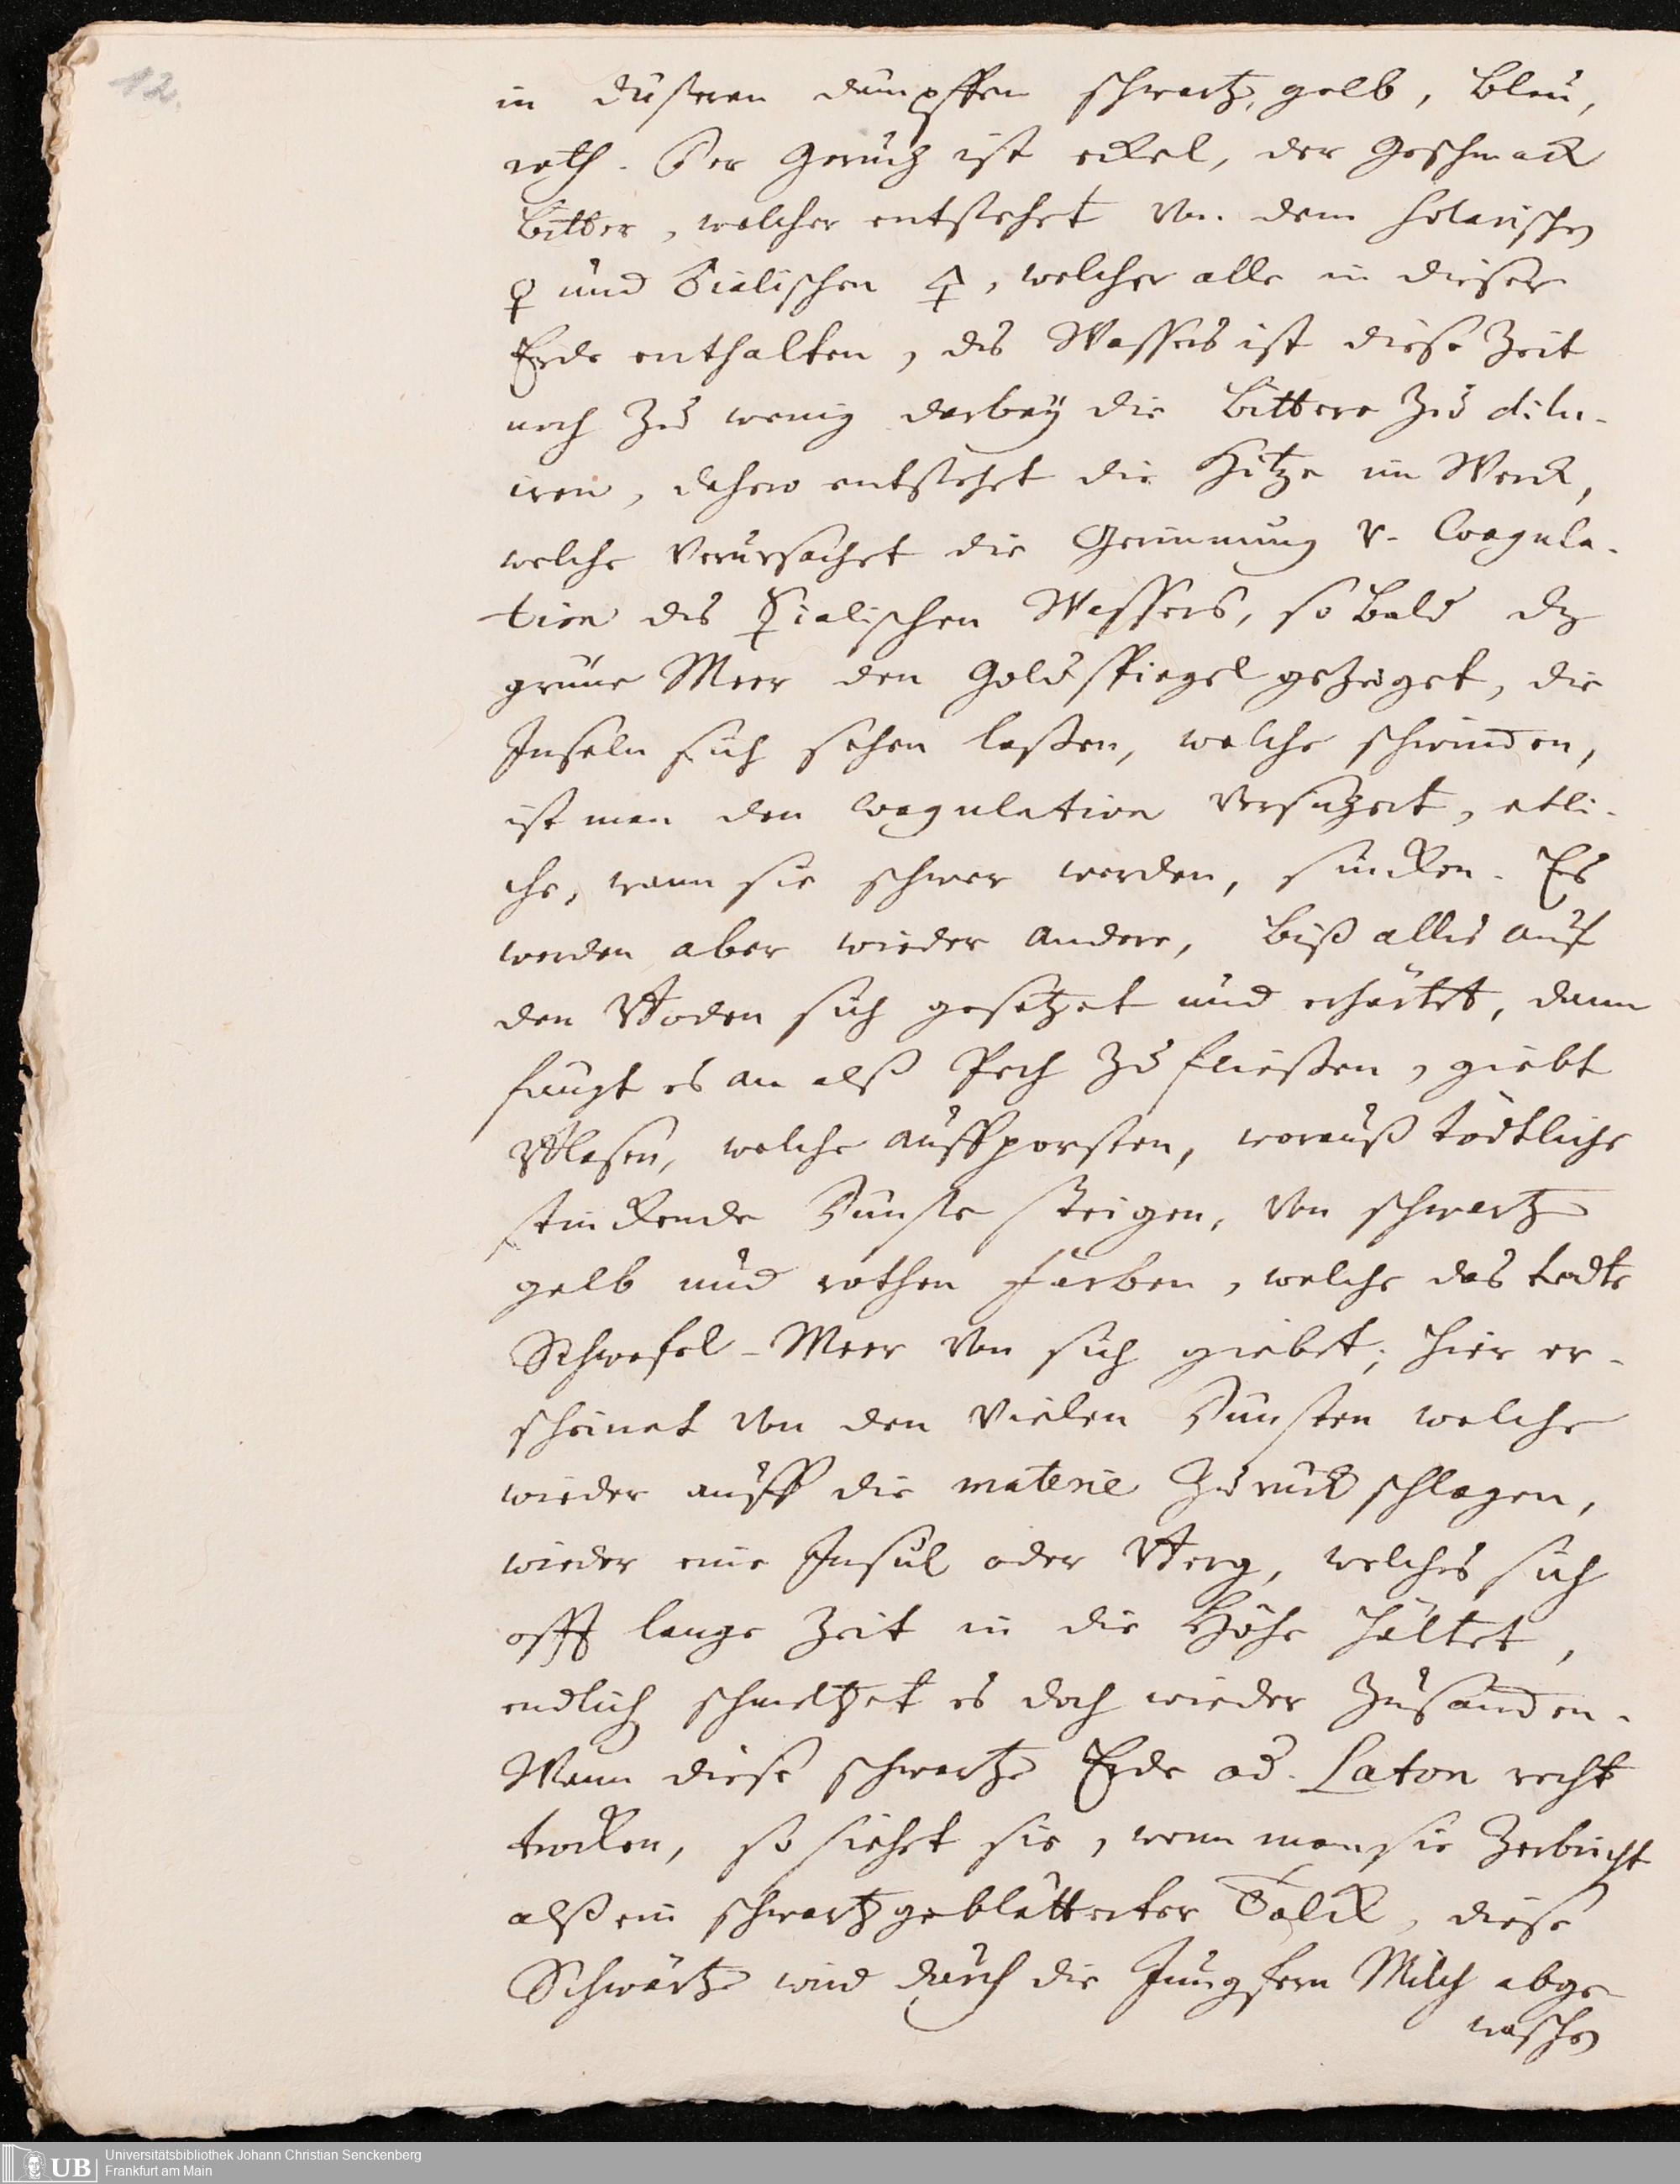 12.
in düsteren dämpffen schwartz, gelb, blau,
roth. Der Geruch ist eckel, der Geschmack
bitter, welcher entstehet von dem solarischen
🜍 und ☿ialischen 🜍, welcher alle in dieser
Erde enthalten, des Wassers ist diese Zeit
noch zu wenig darbey die bittere zu dilu-
iren, dahero entstehet die Hitze im Werck,
welche verursachet die Gerinnung v. Coagula-
tion des ☿ialischen Wassers, so bald dz
grüne Meer den Goldspiegel gezeiget, die
Inseln sich sehen laßen, welche schwinden,
ist man den coagulation versichert, etli-
che, wann sie schwer werden, sincken. Es
werden aber wieder andere, biß alles auf
den Boden sich gesetzet und erhärtet, dann
fangt es an alß Pech zu fließen, giebt
Blasen, welche auffporsten, worauß tödtliche
stinckende Dünste steigen, von schwartz
gelb und rothen farben, welche das todte
Schwefel-Meer von sich giebet; hier er-
scheinet von den vielen Dünsten welche
wieder auff die materie zurück schlagen,
wieder eine Insul oder Berg, welches sich
offt lange Zeit in die Höhe hältet,
endlich schmeltzet es doch wieder zusamden.
Wann diese schwartze Erde od. Laton recht
trocken, so siehet sie, wenn man sie zerbricht
alß ein schwartz geblätterter Talck, diese
Schwärtze wird durch die Jungfern Milch abge-
waschen
UB
Universitätsbibliothek Johann Christian Senckenberg
Frankfurt am Main